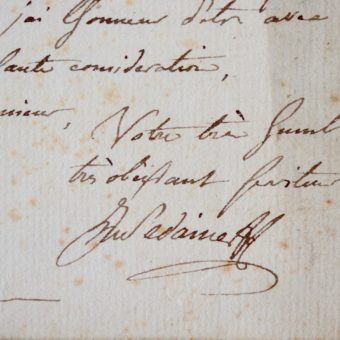 j'ai l'honneur d'être avec
haute consideration,
Votre très humb
très obéissant serviteur